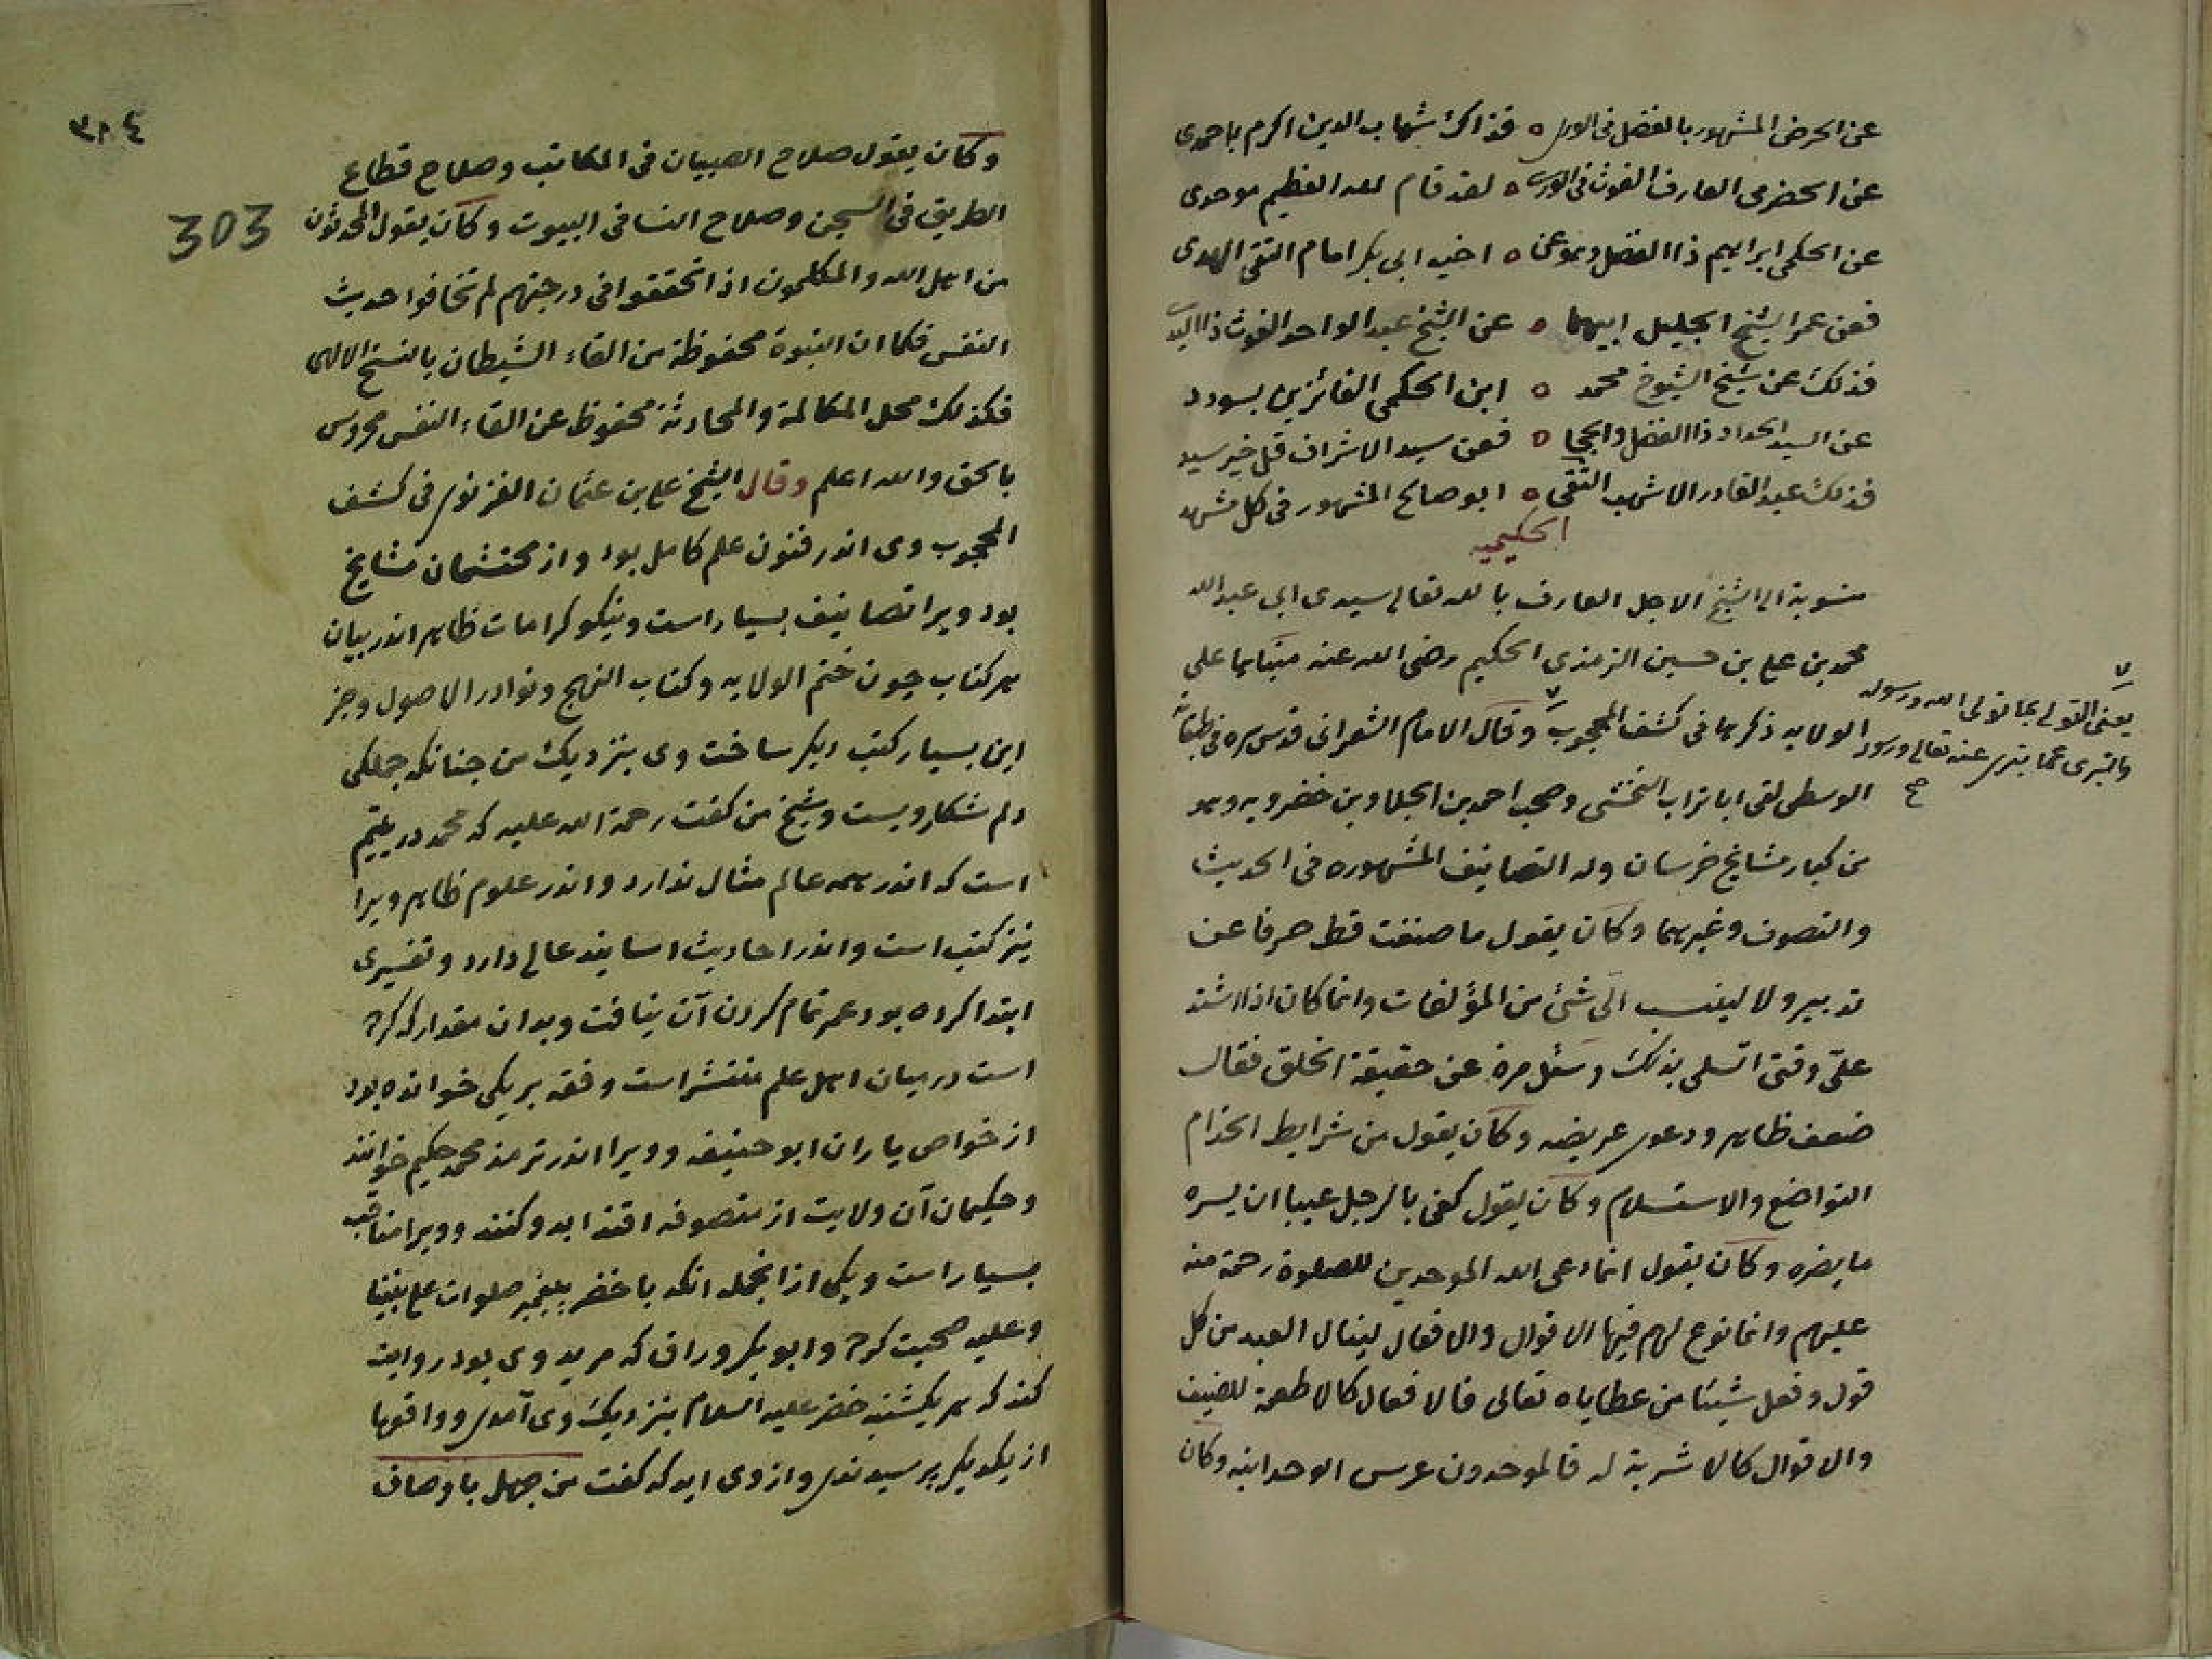 عن الحرضى المشهور بالفضل فى الورى ه فذاك شهاب الدين اكرم باحمدى
عن الحضرمى العارف الغوث فى الورى ه لقد قام لله العظيم موحدى
عن الحكمى ابراهيم ذا الفضل وهو عن ه اخيه ابى بكر امام التقى الهدى
فعن عمر الشيخ الجليل ابيهما ه عن الشيخ عبد الواحد الغوث ذا اليد
فذلك عن شيخ الشيوخ محمد ه ابن الحكمى الفائزين بسودد
عن السيد الحداد ذا الفضل والحجا ه فعن سيد الاشراف قل خير سيد
فذلك عبد القادر الاشهب التقى ه ابو صالح المشهور فى كل مشهد
الحكيميه
منسوبة الى الشيخ الاجل العارف بالله تعالى سيدى ابى عبد الله
محمد بن على بن حسين الترمذى الحكيم رضى الله عنه مبناها على
الولايه ذكرها فى كشف المحجوب وقال الامام الشعرانى قدس سره فى طبقاته
يعنى التولى بما تولى الله ورسوله
والتبرى عما تبرى عنه تعالى ورسوله
صح
الوسطى لقى ابا تراب النخشبى وصحب احمد بن الجلاء وبن خضرويه وهو
من كبار مشايخ خرسان وله التصانيف المشهوره فى الحديث
والتصوف وغيرهما وكان يقول ما صنفت قط حرفا عن
تدبير ولا لينسب الى شئ من المؤلفات وانما كان اذا اشتد
علىّ وقتى اتسلى بذلك وسئل مرة عن حقيقة الخلق فقال
ضعف ظاهر ودعوى عريضه وكان يقول من شرايط الخدام
التواضع والاستسلام وكان يقول كفى بالرجل عيبا ان يسره
ما يضره وكان يقول انما دعى الله الموحدين للصلوة رحمة منه
عليهم وانما نوع لهم فيها الاقوال والافعال لينال العبد من كل
قول وفعل شيئا من عطاياه تعالى فالافعال كالاطعمة للضيف
والاقوال كالاشربة له فالموحدون عرس الوحدانيه وكان
٣٠٤
303
وكان يقول صلاح الصبيان فى المكاتب وصلاح قطاع
الطريق فى السجن وصلاح النسا فى البيوت وكان يقول المحدثون
من اهل الله والمتكلمون اذا تحققوا فى درجتهم لم يخافوا حديث
النفس فكما ان النبوة محفوظة من القاء الشيطان بالنسخ الالهى
فكذلك محل المكالمة والمحادثة محفوظ عن القاء النفس محروس
بالحق والله اعلم وقال الشيخ على بن عثمان الغزنوى فى كشف
المحجوب وى اندر فنون علم كامل بود و از محتشمان مشايخ
بود ويرا تصانيف بسيار است ونيكو كرامات ظاهر اندر بيان
هر كتاب چون ختم الولايه وكتاب النهج ونوادر الاصول وجز
اين بسيار كتب ديكر ساخت وى بنزديك من چنانكه جملكى
دلم شكار ويست وشيخ من كفت رحمة الله عليه كه محمد در يتيم
است كه اندر همه عالم مثال ندارد و اندر علوم ظاهر ويرا
نيز كتب است و اندر احاديث اسانيد عالى دارد و تفسيرى
ابتدا كرده بود عمر تمام كردن آن نيافت و بدان مقدار كه كرده
است در ميان اهل علم منتشر است و فقه بر يكى خوانده بود
از خواص ياران ابو حنيفه و ويرا اندر ترمذ محمد حكيم خوانند
و حكيمان آن ولايت از متصوفه اقتدا بدو كنند و ويرا مناقب
بسيار است و يكى از انجمله انكه با خضر پيغمبر صلوات على نبينا
وعليه صحبت كرده و ابو بكر وراق كه مريد وى بود روايت
كند كه هر يكشنبه خضر عليه السلام بنزديك وى آمدى و واقعها
از يكديكر پرسيدندى و از وى ايد كه كفت من جهل باوصاف